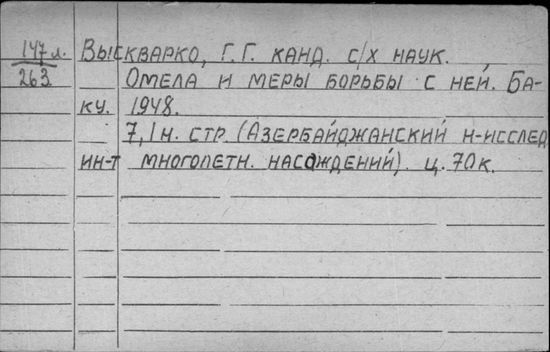 147л. Выскварко, Г.Г. канд. с/х наук.
263 Омела и меры борьбы с ней. Ба-
ку. 1948.
7,1н. стр. (Азербайджанский н-исслед
ин-т многолетн. насаждений). ц. 70к.